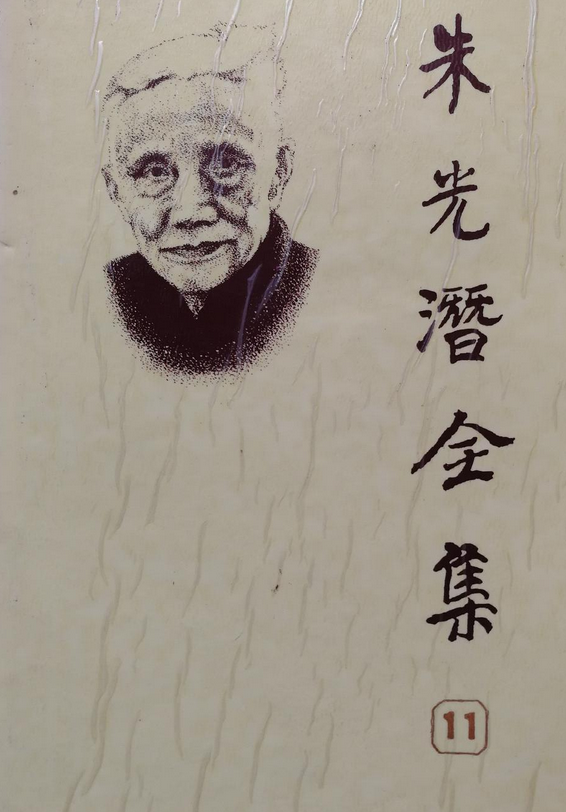 朱光潛全集
11